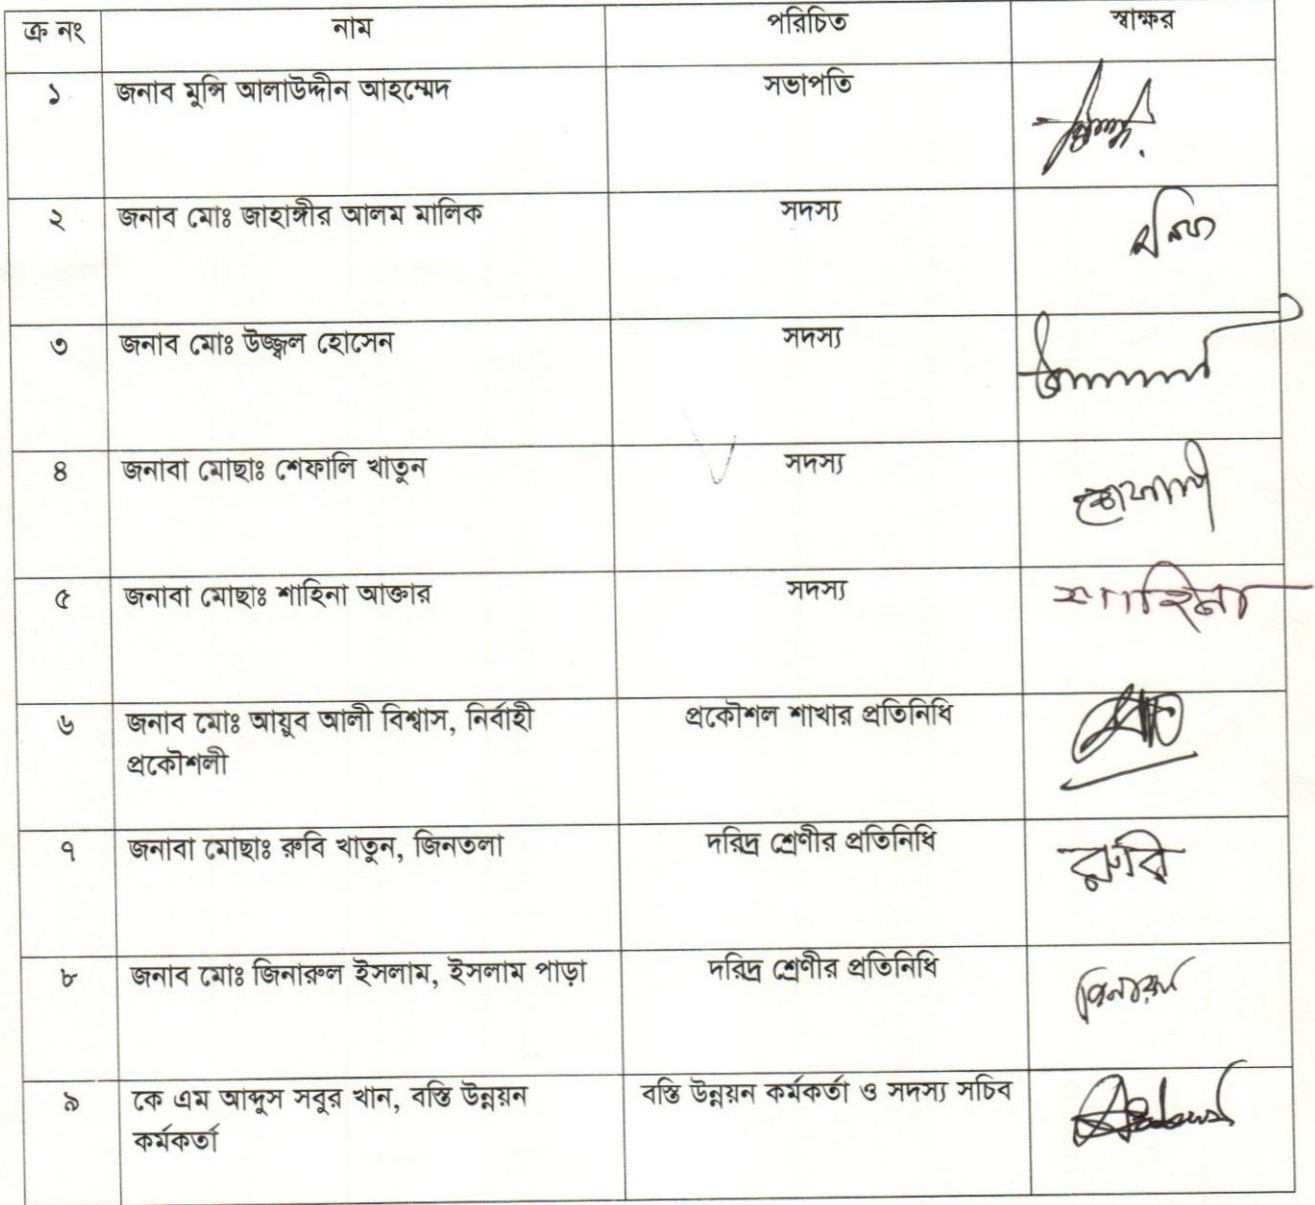 ক্র নং নাম পরিচিত স্বাক্ষর
১ জনাব মুন্সি আলাউদ্দীন আহম্মেদ সভাপতি
২ জনাব মোঃ জাহাঙ্গীর আলম মালিক সদস্য
৩ জনাব মোঃ উজ্জ্বল হোসেন সদস্য
৪ জনাবা মোছাঃ শেফালি খাতুন সদস্য শেফালী
৫ জনাবা মোছাঃ শাহিনা আক্তার সদস্য শাহিনা
৬ জনাব মোঃ আয়ুব আলী বিশ্বাস, নির্বাহী প্রকৌশল শাখার প্রতিনিধি
প্রকৌশলী
৭ জনাবা মোছাঃ রুবি খাতুন, জিনতলা দরিদ্র শ্রেণীর প্রতিনিধি রুবি
৮ জনাব মোঃ জিনারুল ইসলাম, ইসলাম পাড়া দরিদ্র শ্রেণীর প্রতিনিধি
৯ কে এম আব্দুস সবুর খান, বস্তি উন্নয়ন বস্তি উন্নয়ন কর্মকর্তা ও সদস্য সচিব
কর্মকর্তা